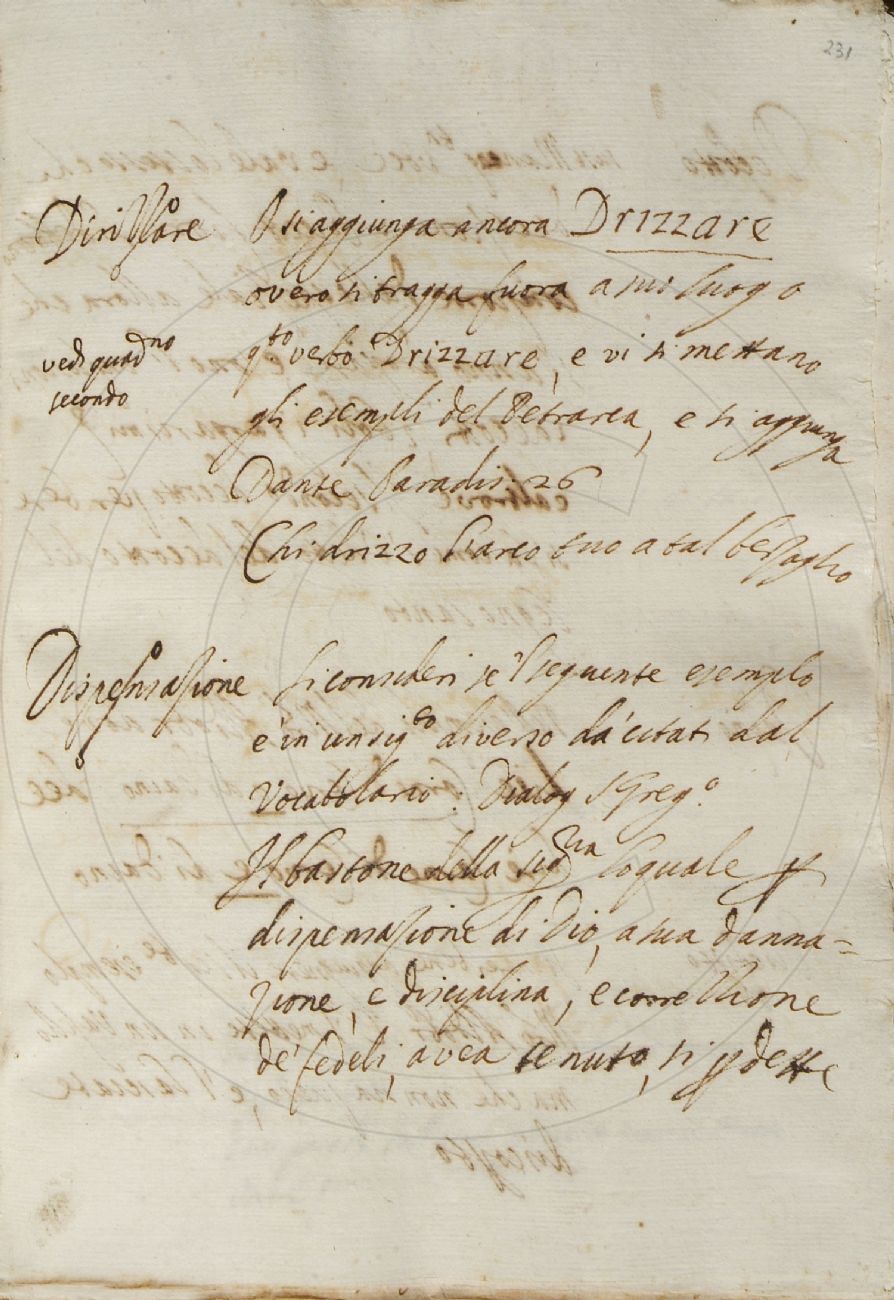 231
Dirizzare O si aggiunga ancora Drizzare
overo si tragga fuora a suo luogo
q.to verbo Drizzare, e vi si mettano
vedi quad.no
secondo
gli esempli del Petrarca, e si aggiunga
Dante Paradis. 26
Chi drizzo l'arco tuo a tal bersaglio
Dispensazione si consideri se 'l seguente esempio
è in un sig.to diverso da' citati dal
Vocabolario. Dialog S Greg.o
Il bastone della loquale
dispensazione di Dio, a sua danna=
zione, e disciplina, e correzzione
de' fedeli, avea tenuto, si pdette